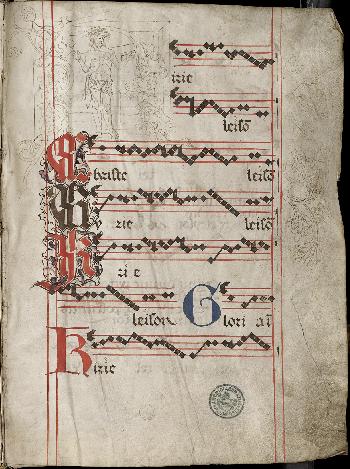 irie
leisō
Christe leisō
Kyrie leisō
Kirie
leison Glori a in
Kirie